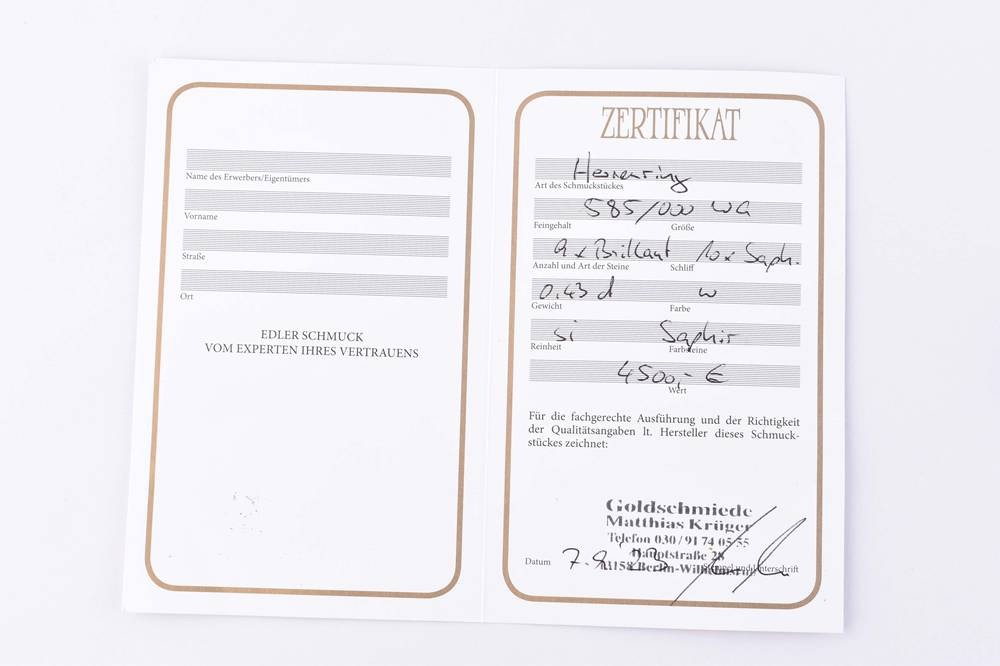 Name des Erwerbers/Eigentümers
Vorname
Straße
Ort
EDLER SCHMUCK
VOM EXPERTEN IHRES VERTRAUENS
ZERTIFIKAT
Herrenring
Art des Schmuckstückes
585/000 WG
Feingehalt Größe
9 x Brillant 10 x Saph.
Anzahl und Art der Steine Schliff
0,43 ct w
Gewicht Farbe
si Saphir
Reinheit Farbsteine
4500,- €
Wert
Für die fachgerechte Ausführung und der Richtigkeit
der Qualitätsangaben lt. Hersteller dieses Schmuck-
stückes zeichnet:
Goldschmiede
Matthias Krüger
Telefon 030 / 91 74 05 55
Hauptstraße 28
Datum 7.9.'23 Stempel und Unterschrift
13158 Berlin-Wilhelmsruh